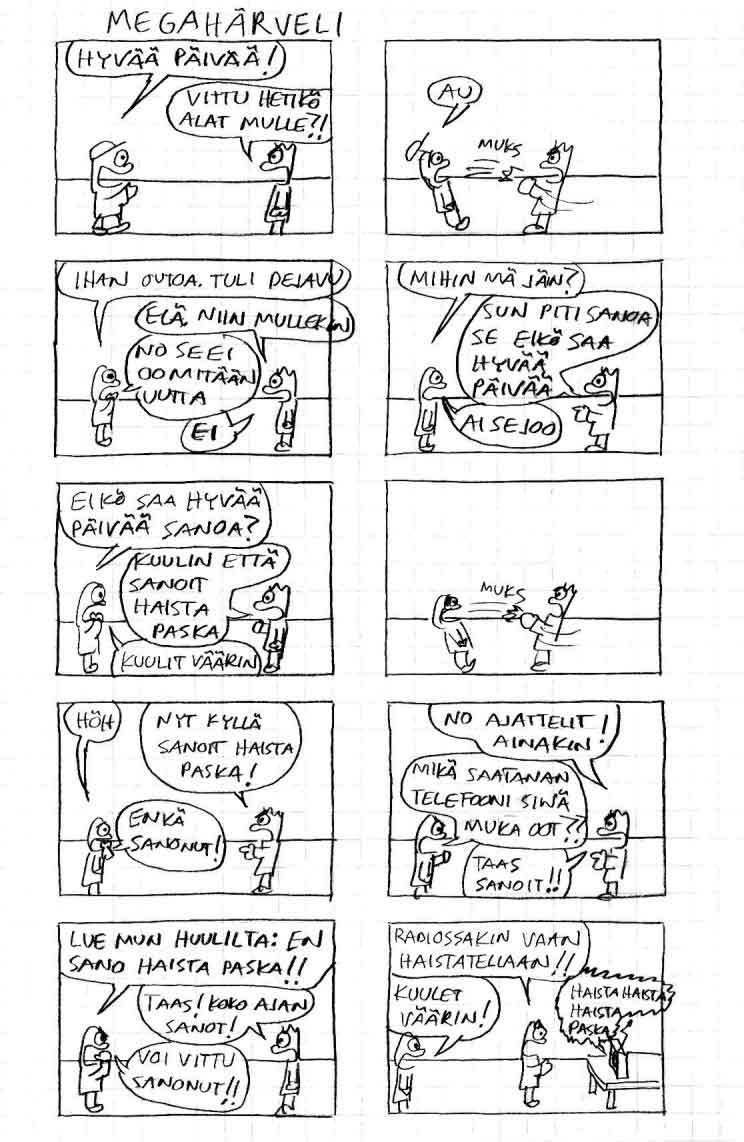 MEGAHÄRVELI
HYVÄÄ PÄIVÄÄ!
VITTU HETIKÖ
ALAT MULLE?!
AU
MUKS
IHAN OUTOA. TULI DEJAVU
ELÄ. NIIN MULLEKIN
NO SE EI
OO MITÄÄN
UUTTA
EI
MIHIN MÄ JÄIN?
SUN PITI SANOA
SE EIKÖ SAA
HYVÄÄ
PÄIVÄÄ
AI SE JOO
EIKÖ SAA HYVÄÄ
PÄIVÄÄ SANOA?
KUULIN ETTÄ
SANOIT
HAISTA
PASKA
KUULIT VÄÄRIN
MUKS
HÖH
NYT KYLLÄ
SANOIT HAISTA
PASKA!
ENKÄ
SANONUT!
NO AJATTELIT
AINAKIN!
MIKÄ SAATANAN
TELEFOONI SINÄ
MUKA OOT??
TAAS
SANOIT!!
LUE MUN HUULILTA: EN
SANO HAISTA PASKA!!
TAAS! KOKO AJAN
SANOT!
VOI VITTU
SANONUT!!
RADIOSSAKIN VAAN
HAISTATELLAAN!!
KUULET
VÄÄRIN!
HAISTA HAISTA
HAISTA
PASKA